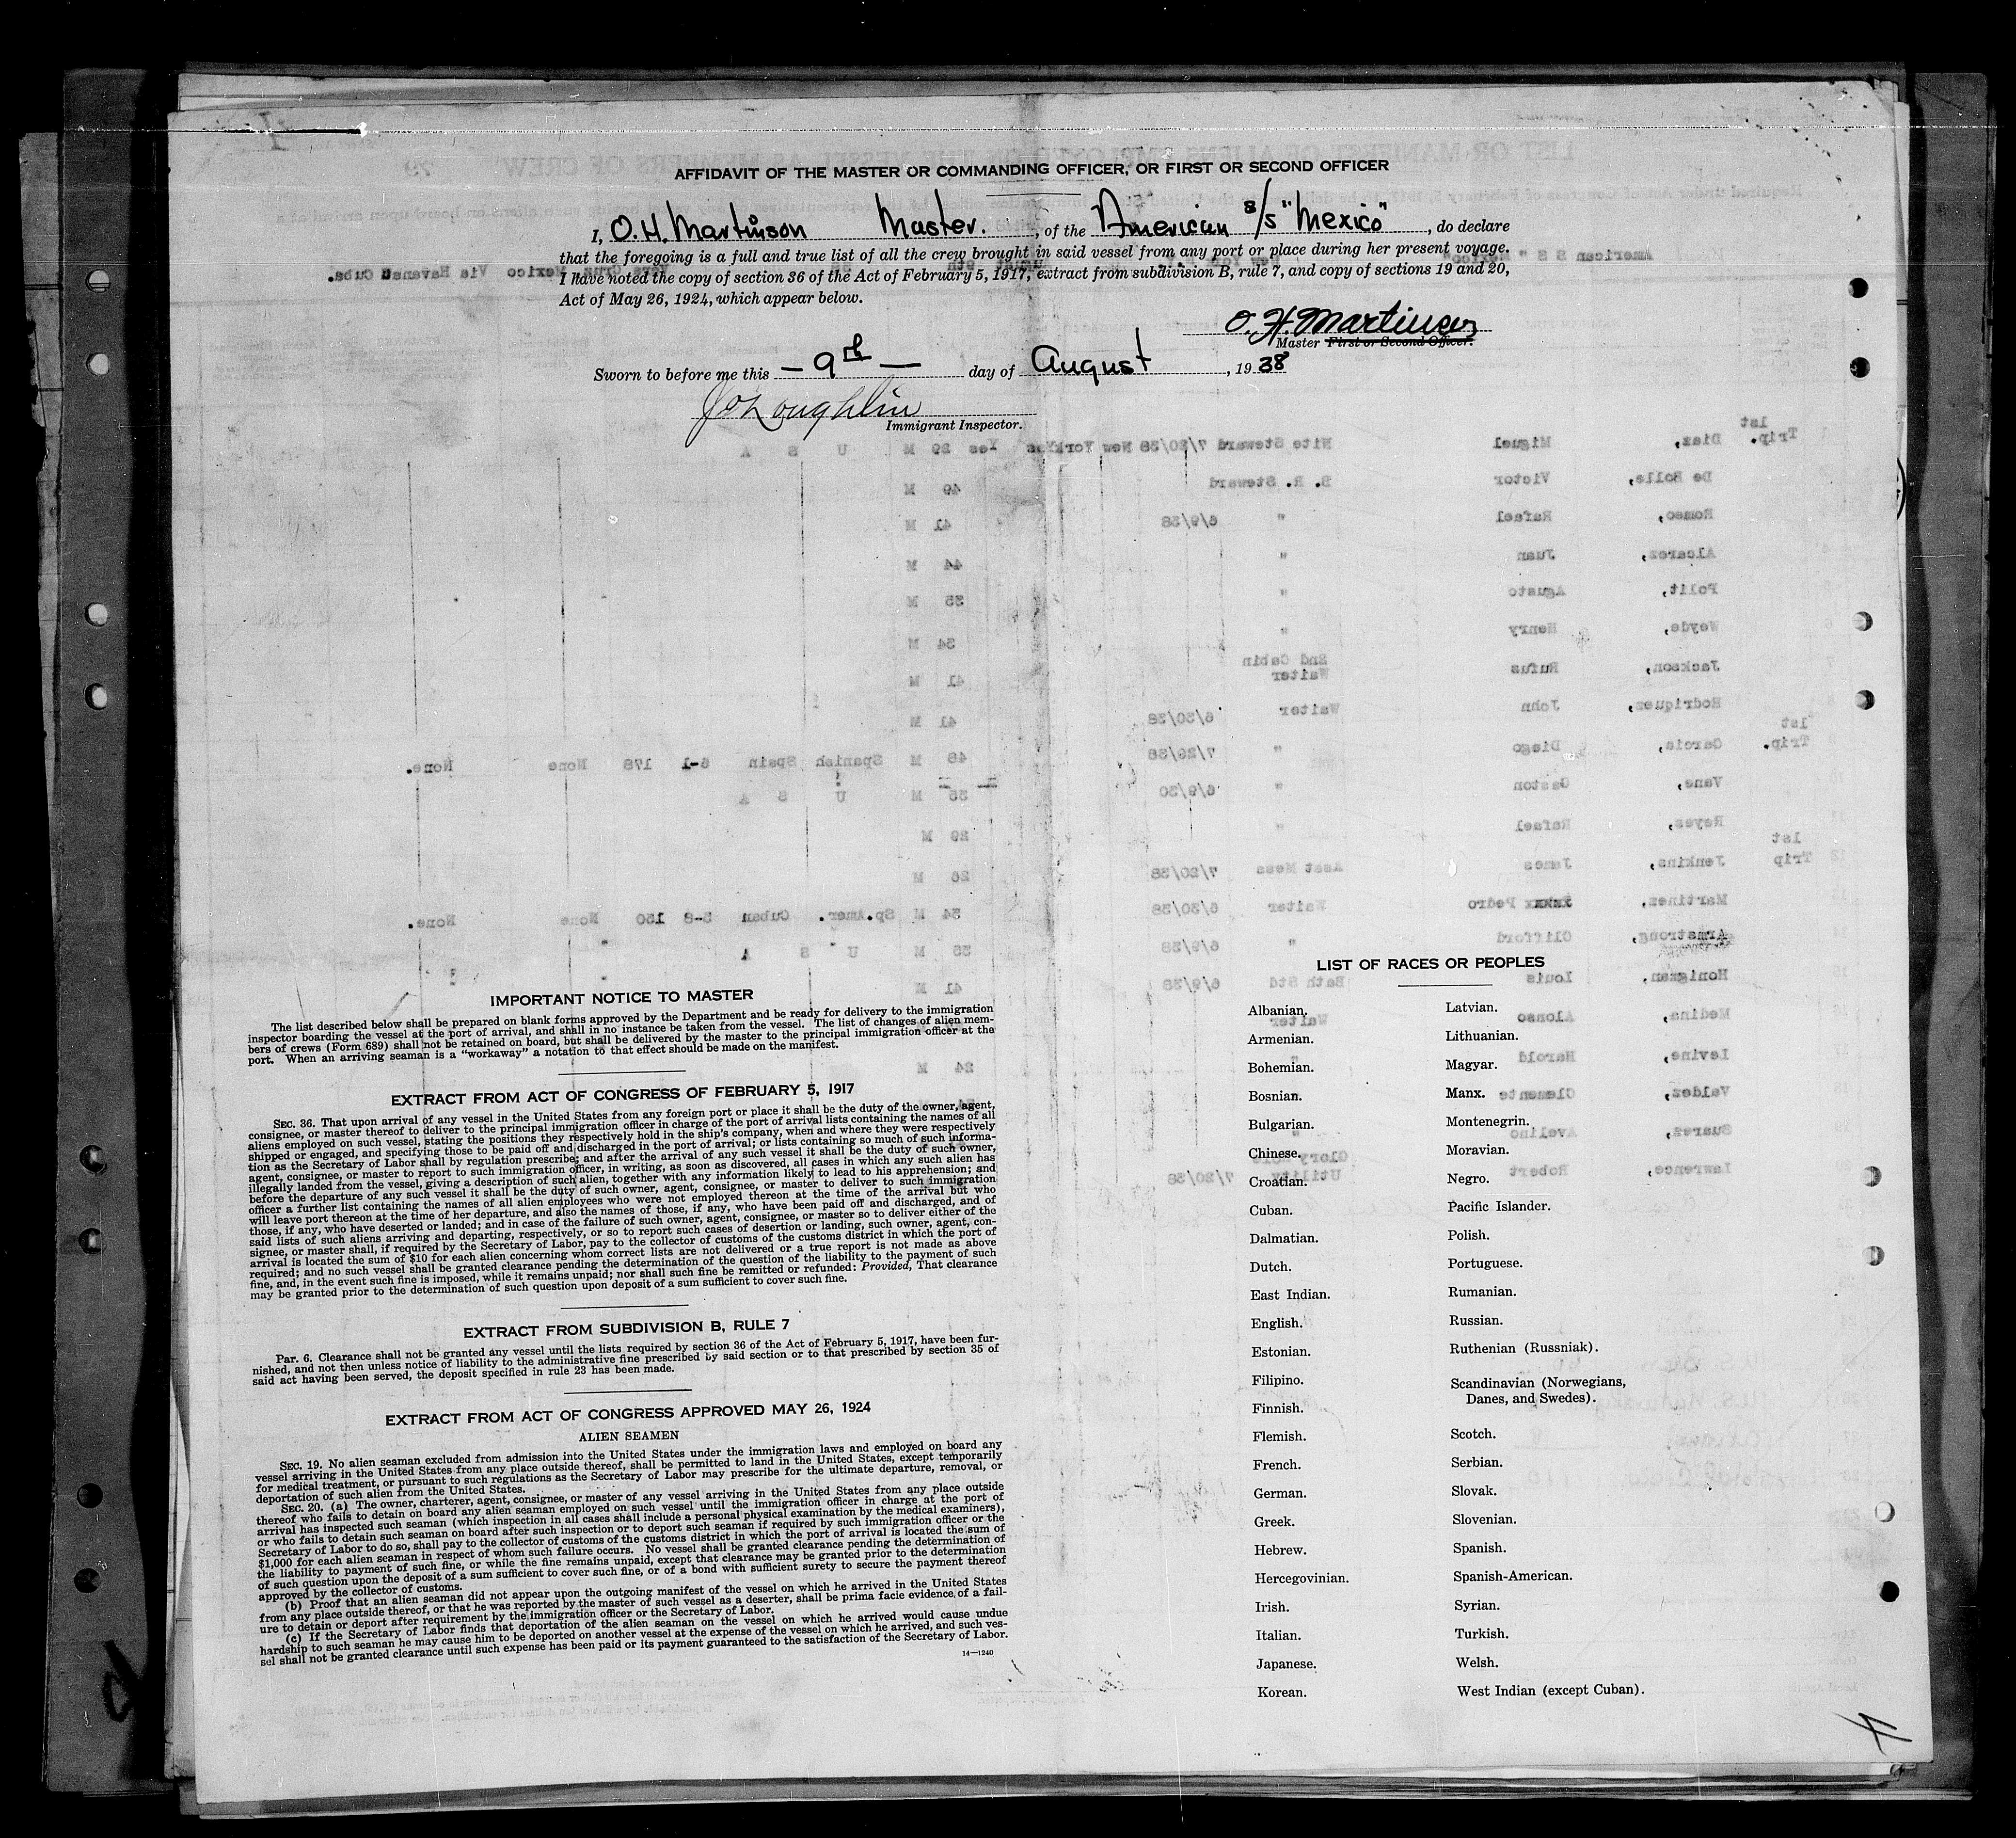 AFFIDAVIT OF THE MASTER OR COMMANDING OFFICER, OR FIRST OR SECOND OFFICER
I, O.H. Martinson Master. , of the American S/S "Mexico" , do declare
that the foregoing is a full and true list of all the crew brought in said vessel from any port or place during her present voyage.
I have noted the copy of section 36 of the Act of February 5, 1917, extract from subdivision B, rule 7, and copy of sections 19 and 20,
Act of May 26, 1924, which appear below.
O. H. Martinson
Master First or Second Officer.
Sworn to before me this — 9th — day of August , 1938
Immigrant Inspector.
IMPORTANT NOTICE TO MASTER
The list described below shall be prepared on blank forms approved by the Department and be ready for delivery to the immigration
inspector boarding the vessel at the port of arrival, and shall in no instance be taken from the vessel. The list of changes of alien mem-
bers of crews (Form 689) shall not be retained on board, but shall be delivered by the master to the principal immigration officer at the
port. When an arriving seaman is a "workaway" a notation to that effect should be made on the manifest.
EXTRACT FROM ACT OF CONGRESS OF FEBRUARY 5, 1917
SEC. 36. That upon arrival of any vessel in the United States from any foreign port or place it shall be the duty of the owner, agent,
consignee, or master thereof to deliver to the principal immigration officer in charge of the port of arrival lists containing the names of all
aliens employed on such vessel, stating the positions they respectively hold in the ship's company, when and where they were respectively
shipped or engaged, and specifying those to be paid off and discharged in the port of arrival; or lists containing so much of such informa-
tion as the Secretary of Labor shall by regulation prescribe; and after the arrival of any such vessel it shall be the duty of such owner,
agent, consignee, or master to report to such immigration officer, in writing, as soon as discovered, all cases in which any such alien has
illegally landed from the vessel, giving a description of such alien, together with any information likely to lead to his apprehension; and
before the departure of any such vessel it shall be the duty of such owner, agent, consignee, or master to deliver to such immigration
officer a further list containing the names of all alien employees who were not employed thereon at the time of the arrival but who
will leave port thereon at the time of her departure, and also the names of those, if any, who have been paid off and discharged, and of
those, if any, who have deserted or landed; and in case of the failure of such owner, agent, consignee, or master so to deliver either of the
said lists of such aliens arriving and departing, respectively, or so to report such cases of desertion or landing, such owner, agent, con-
signee, or master shall, if required by the Secretary of Labor, pay to the collector of customs of the customs district in which the port of
arrival is located the sum of $10 for each alien concerning whom correct lists are not delivered or a true report is not made as above
required; and no such vessel shall be granted clearance pending the determination of the question of the liability to the payment of such
fine, and, in the event such fine is imposed, while it remains unpaid; nor shall such fine be remitted or refunded: Provided, That clearance
may be granted prior to the determination of such question upon deposit of a sum sufficient to cover such fine.
EXTRACT FROM SUBDIVISION B, RULE 7
Par. 6. Clearance shall not be granted any vessel until the lists required by section 36 of the Act of February 5, 1917, have been fur-
nished, and not then unless notice of liability to the administrative fine prescribed by said section or to that prescribed by section 35 of
said act having been served, the deposit specified in rule 23 has been made.
EXTRACT FROM ACT OF CONGRESS APPROVED MAY 26, 1924
ALIEN SEAMEN
SEC. 19. No alien seaman excluded from admission into the United States under the immigration laws and employed on board any
vessel arriving in the United States from any place outside thereof, shall be permitted to land in the United States, except temporarily
for medical treatment, or pursuant to such regulations as the Secretary of Labor may prescribe for the ultimate departure, removal, or
deportation of such alien from the United States.
SEC. 20. (a) The owner, charterer, agent, consignee, or master of any vessel arriving in the United States from any place outside
thereof who fails to detain on board any alien seaman employed on such vessel until the immigration officer in charge at the port of
arrival has inspected such seaman (which inspection in all cases shall include a personal physical examination by the medical examiners),
or who fails to detain such seaman on board after such inspection or to deport such seaman if required by such immigration officer or the
Secretary of Labor to do so, shall pay to the collector of customs of the customs district in which the port of arrival is located the sum of
$1,000 for each alien seaman in respect of whom such failure occurs. No vessel shall be granted clearance pending the determination of
the liability to payment of such fine, or while the fine remains unpaid, except that clearance may be granted prior to the determination
of such question upon the deposit of a sum sufficient to cover such fine, or of a bond with sufficient surety to secure the payment thereof
approved by the collector of customs.
(b) Proof that an alien seaman did not appear upon the outgoing manifest of the vessel on which he arrived in the United States
from any place outside thereof, or that he was reported by the master of such vessel as a deserter, shall be prima facie evidence of a fail-
ure to detain or deport after requirement by the immigration officer or the Secretary of Labor.
(c) If the Secretary of Labor finds that deportation of the alien seaman on the vessel on which he arrived would cause undue
hardship to such seaman he may cause him to be deported on another vessel at the expense of the vessel on which he arrived, and such ves-
sel shall not be granted clearance until such expense has been paid or its payment guaranteed to the satisfaction of the Secretary of Labor.
14—1240
LIST OF RACES OR PEOPLES
Albanian.
Armenian.
Bohemian.
Bosnian.
Bulgarian.
Chinese.
Croatian.
Cuban.
Dalmatian.
Dutch.
East Indian.
English.
Estonian.
Filipino.
Finnish.
Flemish.
French.
German.
Greek.
Hebrew.
Hercegovinian.
Irish.
Italian.
Japanese.
Korean.
Latvian.
Lithuanian.
Magyar.
Manx.
Montenegrin.
Moravian.
Negro.
Pacific Islander.
Polish.
Portuguese.
Rumanian.
Russian.
Ruthenian (Russniak).
Scandinavian (Norwegians,
Danes, and Swedes).
Scotch.
Serbian.
Slovak.
Slovenian.
Spanish.
Spanish-American.
Syrian.
Turkish.
Welsh.
West Indian (except Cuban).